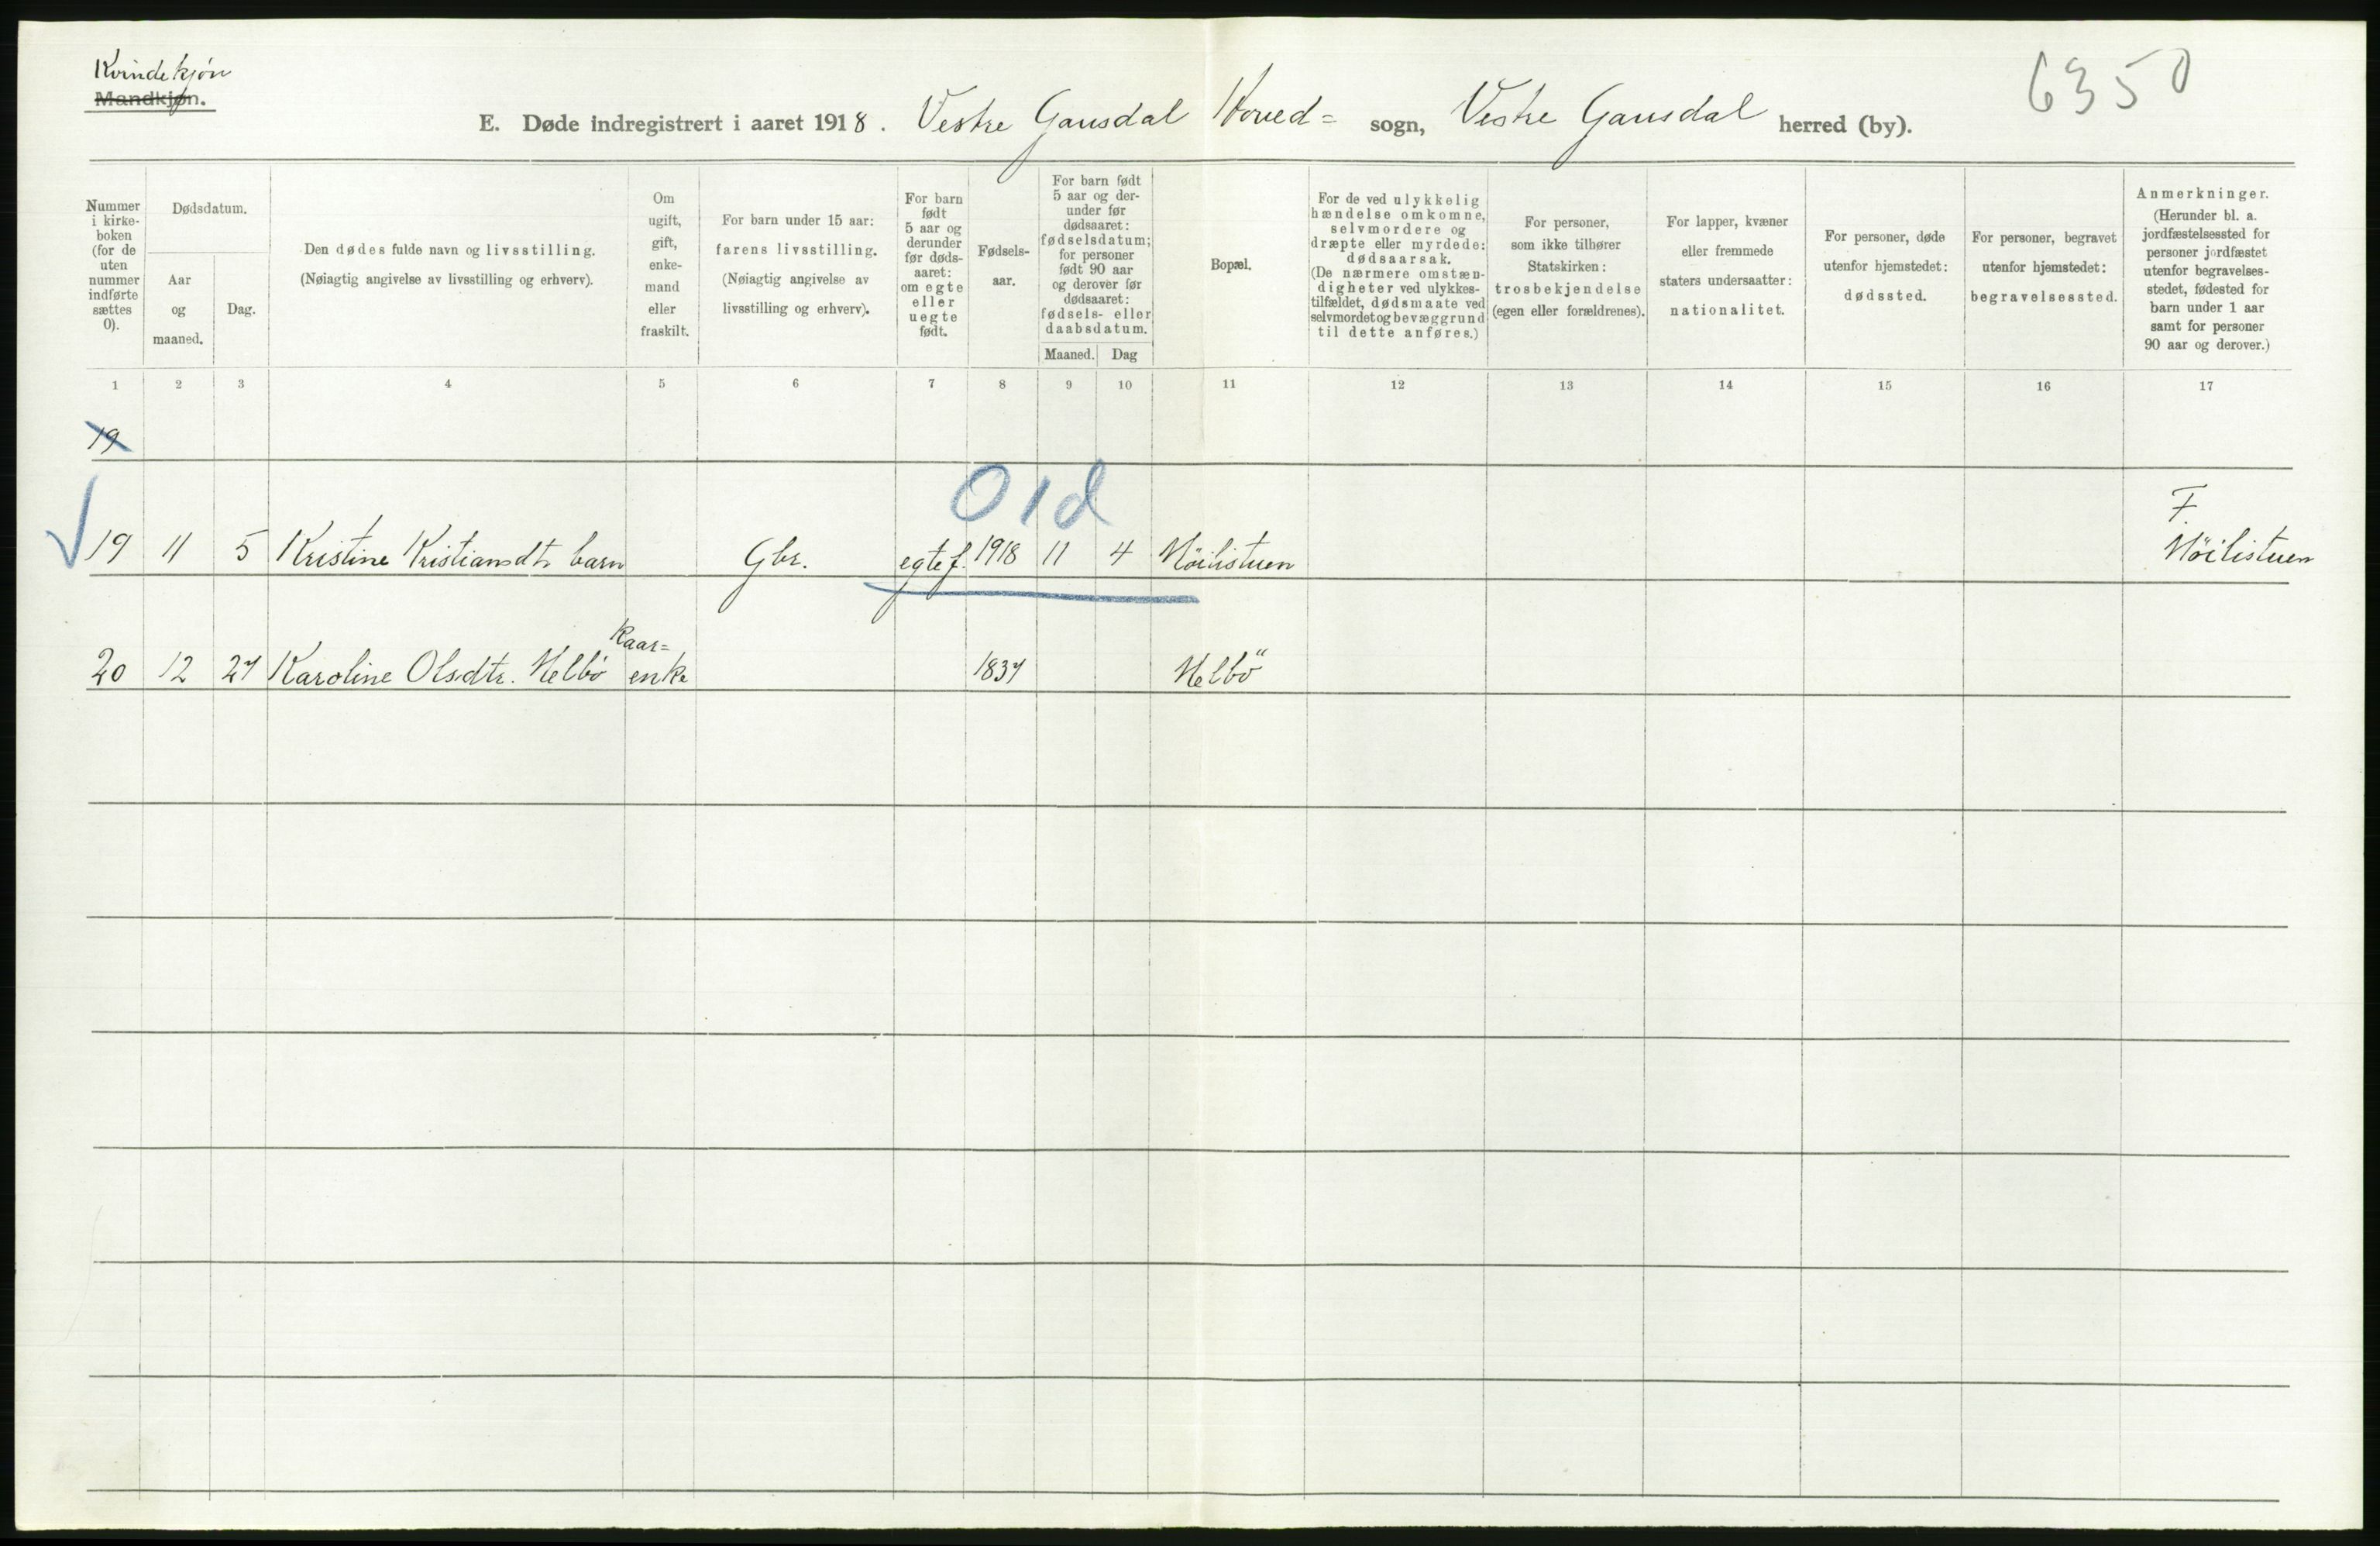 Kvindekjøn
Mandkjøn.
6350
E. Døde indregistrert i aaret 1918. Vestre Gausdal Hoved= sogn, Vestre Gausdal herred (by).
Nummer i kirke-boken (for de uten nummer indførte sættes 0).
Dødsdatum.
Aar og maaned.
Dag.
Den dødes fulde navn og livsstilling.
(Nøiagtig angivelse av livsstilling og erhverv).
Om ugift, gift, enke-mand eller fraskilt.
For barn under 15 aar: farens livsstilling.
(Nøiagtig angivelse av livsstilling og erhverv).
For barn født 5 aar og derunder før døds-aaret: om egte eller uegte født.
Fødsels-aar.
For barn født 5 aar og der-under før dødsaaret: fødselsdatum; for personer født 90 aar og derover før dødsaaret: fødsels- eller daabsdatum.
Maaned. Dag
Bopæl.
For de ved ulykkelig hændelse omkomne, selvmordere og dræpte eller myrdede: dødsaarsak.
(De nærmere omstæn-digheter ved ulykkes-tilfældet, dødsmaate ved selvmordet og bevæggrund til dette anføres.)
For personer, som ikke tilhører Statskirken: trosbekjendelse (egen eller forældrenes).
For lapper, kvæner eller fremmede staters undersaatter: nationalitet.
For personer, døde utenfor hjemstedet: dødssted.
For personer, begravet utenfor hjemstedet: begravelsessted.
Anmerkninger.
(Herunder bl. a. jordfæstelsessted for personer jordfæstet utenfor begravelses-stedet, fødested for barn under 1 aar samt for personer 90 aar og derover.)
1 2 3 4 5 6 7 8 9 10 11 12 13 14 15 16 17
19
01d
F.
19 11 5 Kristine Kristiansdtr barn Gbr. egte f. 1918 11 4 Höilistuen Höilistuen
Kaar=
20 12 27 Karoline Olsdtr. Helbö enke 1837 Helbö